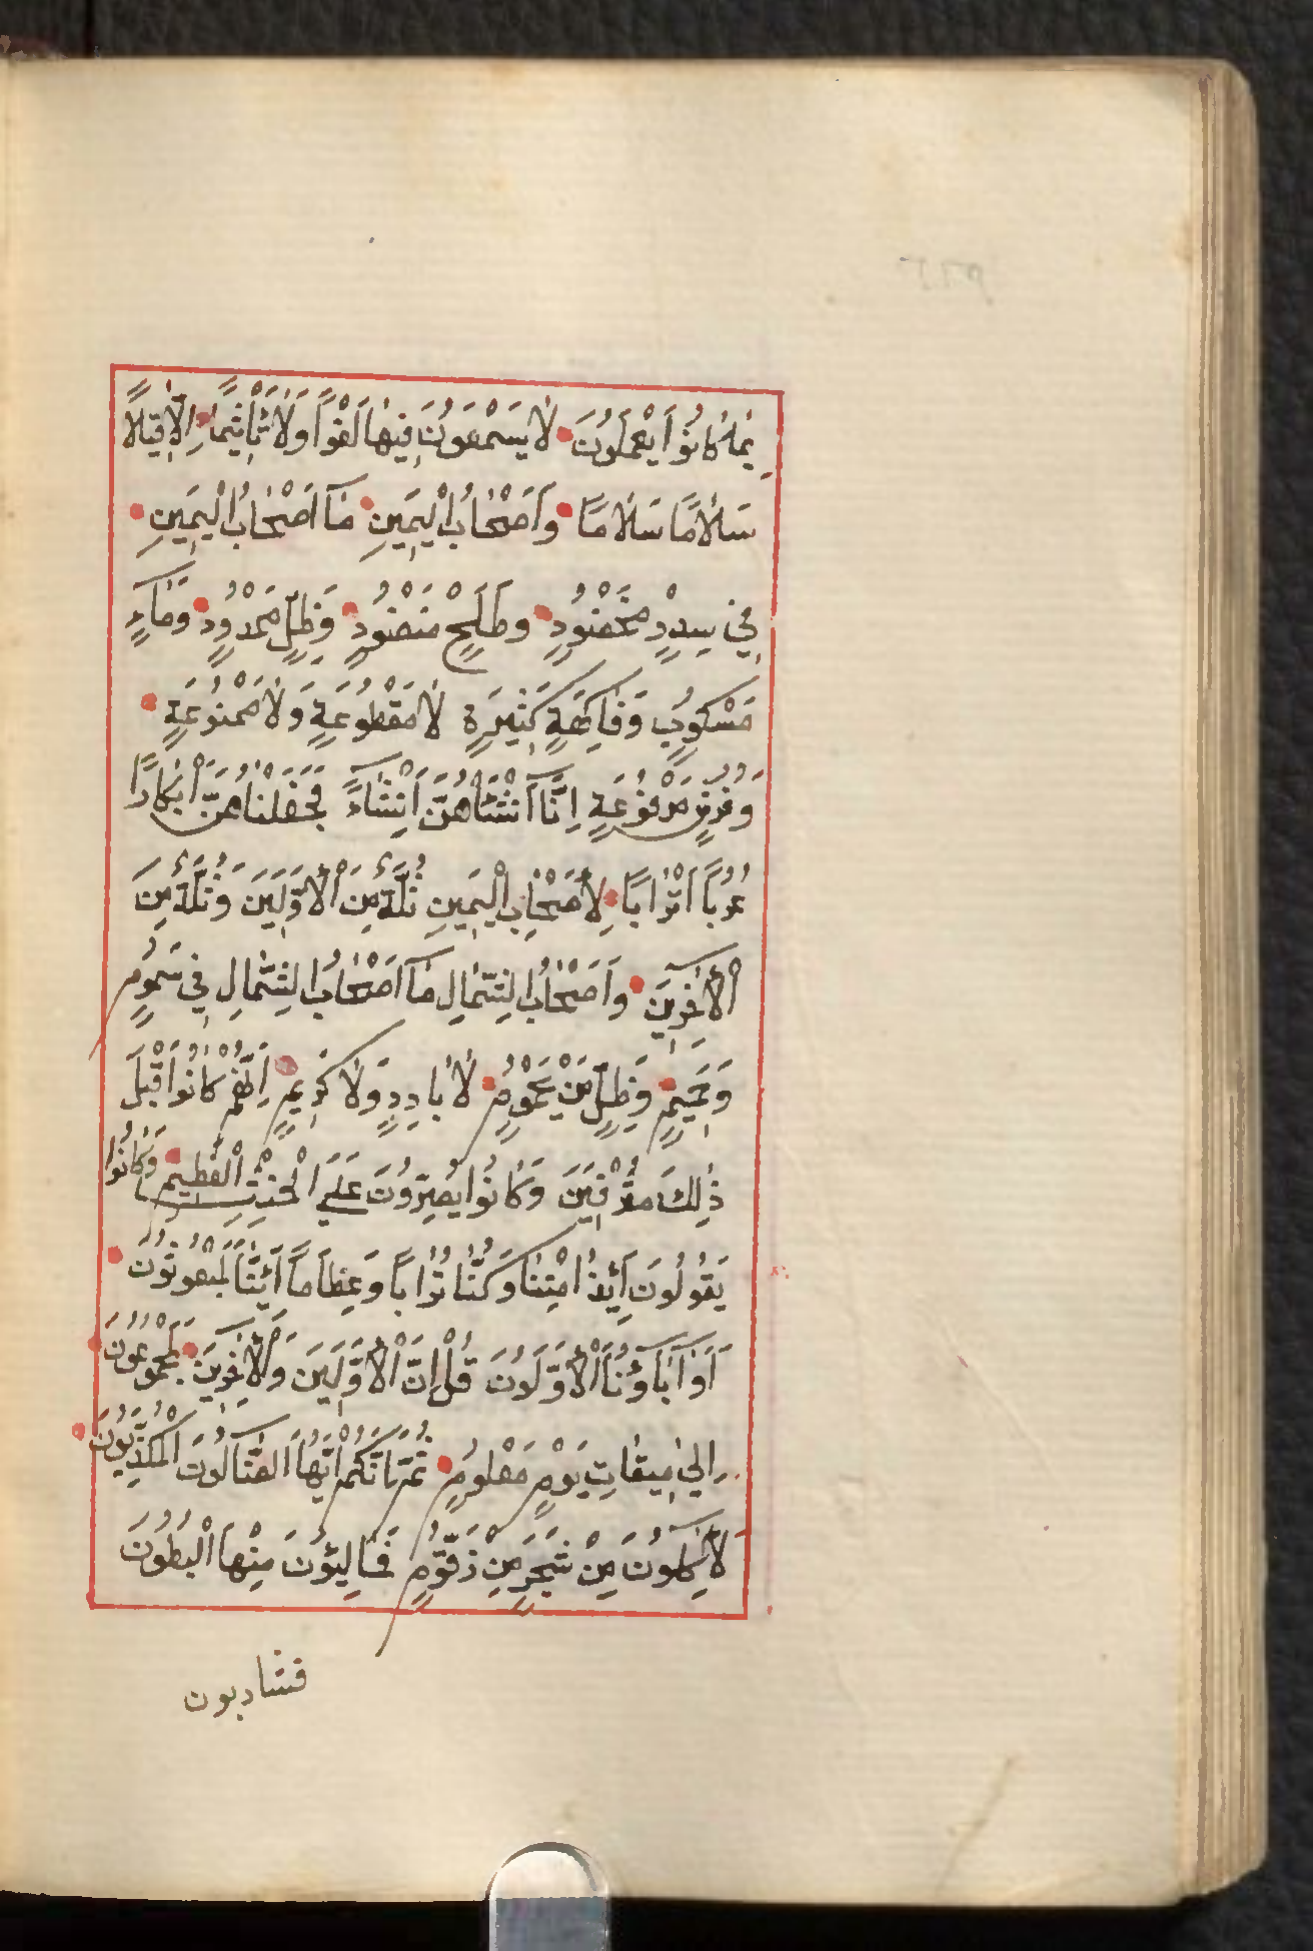 بِمَا كَانُوا يَعْمَلُونَ لَا يَسْمَعُونَ فِيهَا لَغْوًا وَلَا تَأْثِيمًا إِلَّا قِيلًا
سَلَامًا سَلَامًا وَأَصْحَابُ الْيَمِينِ مَآ اَصْحَابُ الْيَمِينِ
فِي سِدْرٍ مَخْضُودٍ وَطَلْحٍ مَنْضُودٍ وَظِلٍّ مَمْدُودٍ وَمَآءٍ
مَسْكُوبٍ وَفَاكِهَةٍ كَثِيرَةٍ لَا مَقْطُوعَةٍ وَلَا مَمْنُوعَةٍ
وَفُرُشٍ مَرْفُوعَةٍ اِنَّآ اَنْشَأْنَاهُنَّ اِنْشَآءً فَجَعَلْنَاهُنَّ أَبْكَارًا
عُرُبًا اَتْرَابًا لِأَصْحَابِ الْيَمِينِ ثُلَّةٌ مِنَ الْأَوَّلِينَ وَثُلَّةٌ مِنَ
الْآخِرِينَ وَاَصْحَابُ الشِّمَالِ مَآ اَصْحَابُ الشِّمَالِ فِي سَمُومٍ
وَحَمِيمٍ وَظِلٍّ مِنْ يَحْمُومٍ لَا بَارِدٍ وَلَا كَرِيمٍ اِنَّهُمْ كَانُوا قَبْلَ
ذٰلِكَ مُتْرَفِينَ وَكَانُوا يُصِرُّونَ عَلَى الْحِنْثِ الْعَظِيمِ وَكَانُوا
يَقُولُونَ أَئِذَا مِتْنَا وَكُنَّا تُرَابًا وَعِظَامًا أَئِنَّا لَمَبْعُوثُونَ
اَوَآبَآؤُنَا الْأَوَّلُونَ قُلْ إِنَّ الْأَوَّلِينَ وَالْآخِرِينَ لَمَجْمُوعُونَ
اِلٰى مِيقَاتِ يَوْمٍ مَعْلُومٍ ثُمَّ اِنَّكُمْ اَيُّهَا الضَّآلُّونَ الْمُكَذِّبُونَ
لَآكِلُونَ مِنْ شَجَرٍ مِنْ زَقُّومٍ فَمَالِئُونَ مِنْهَا الْبُطُونَ
فشاربون